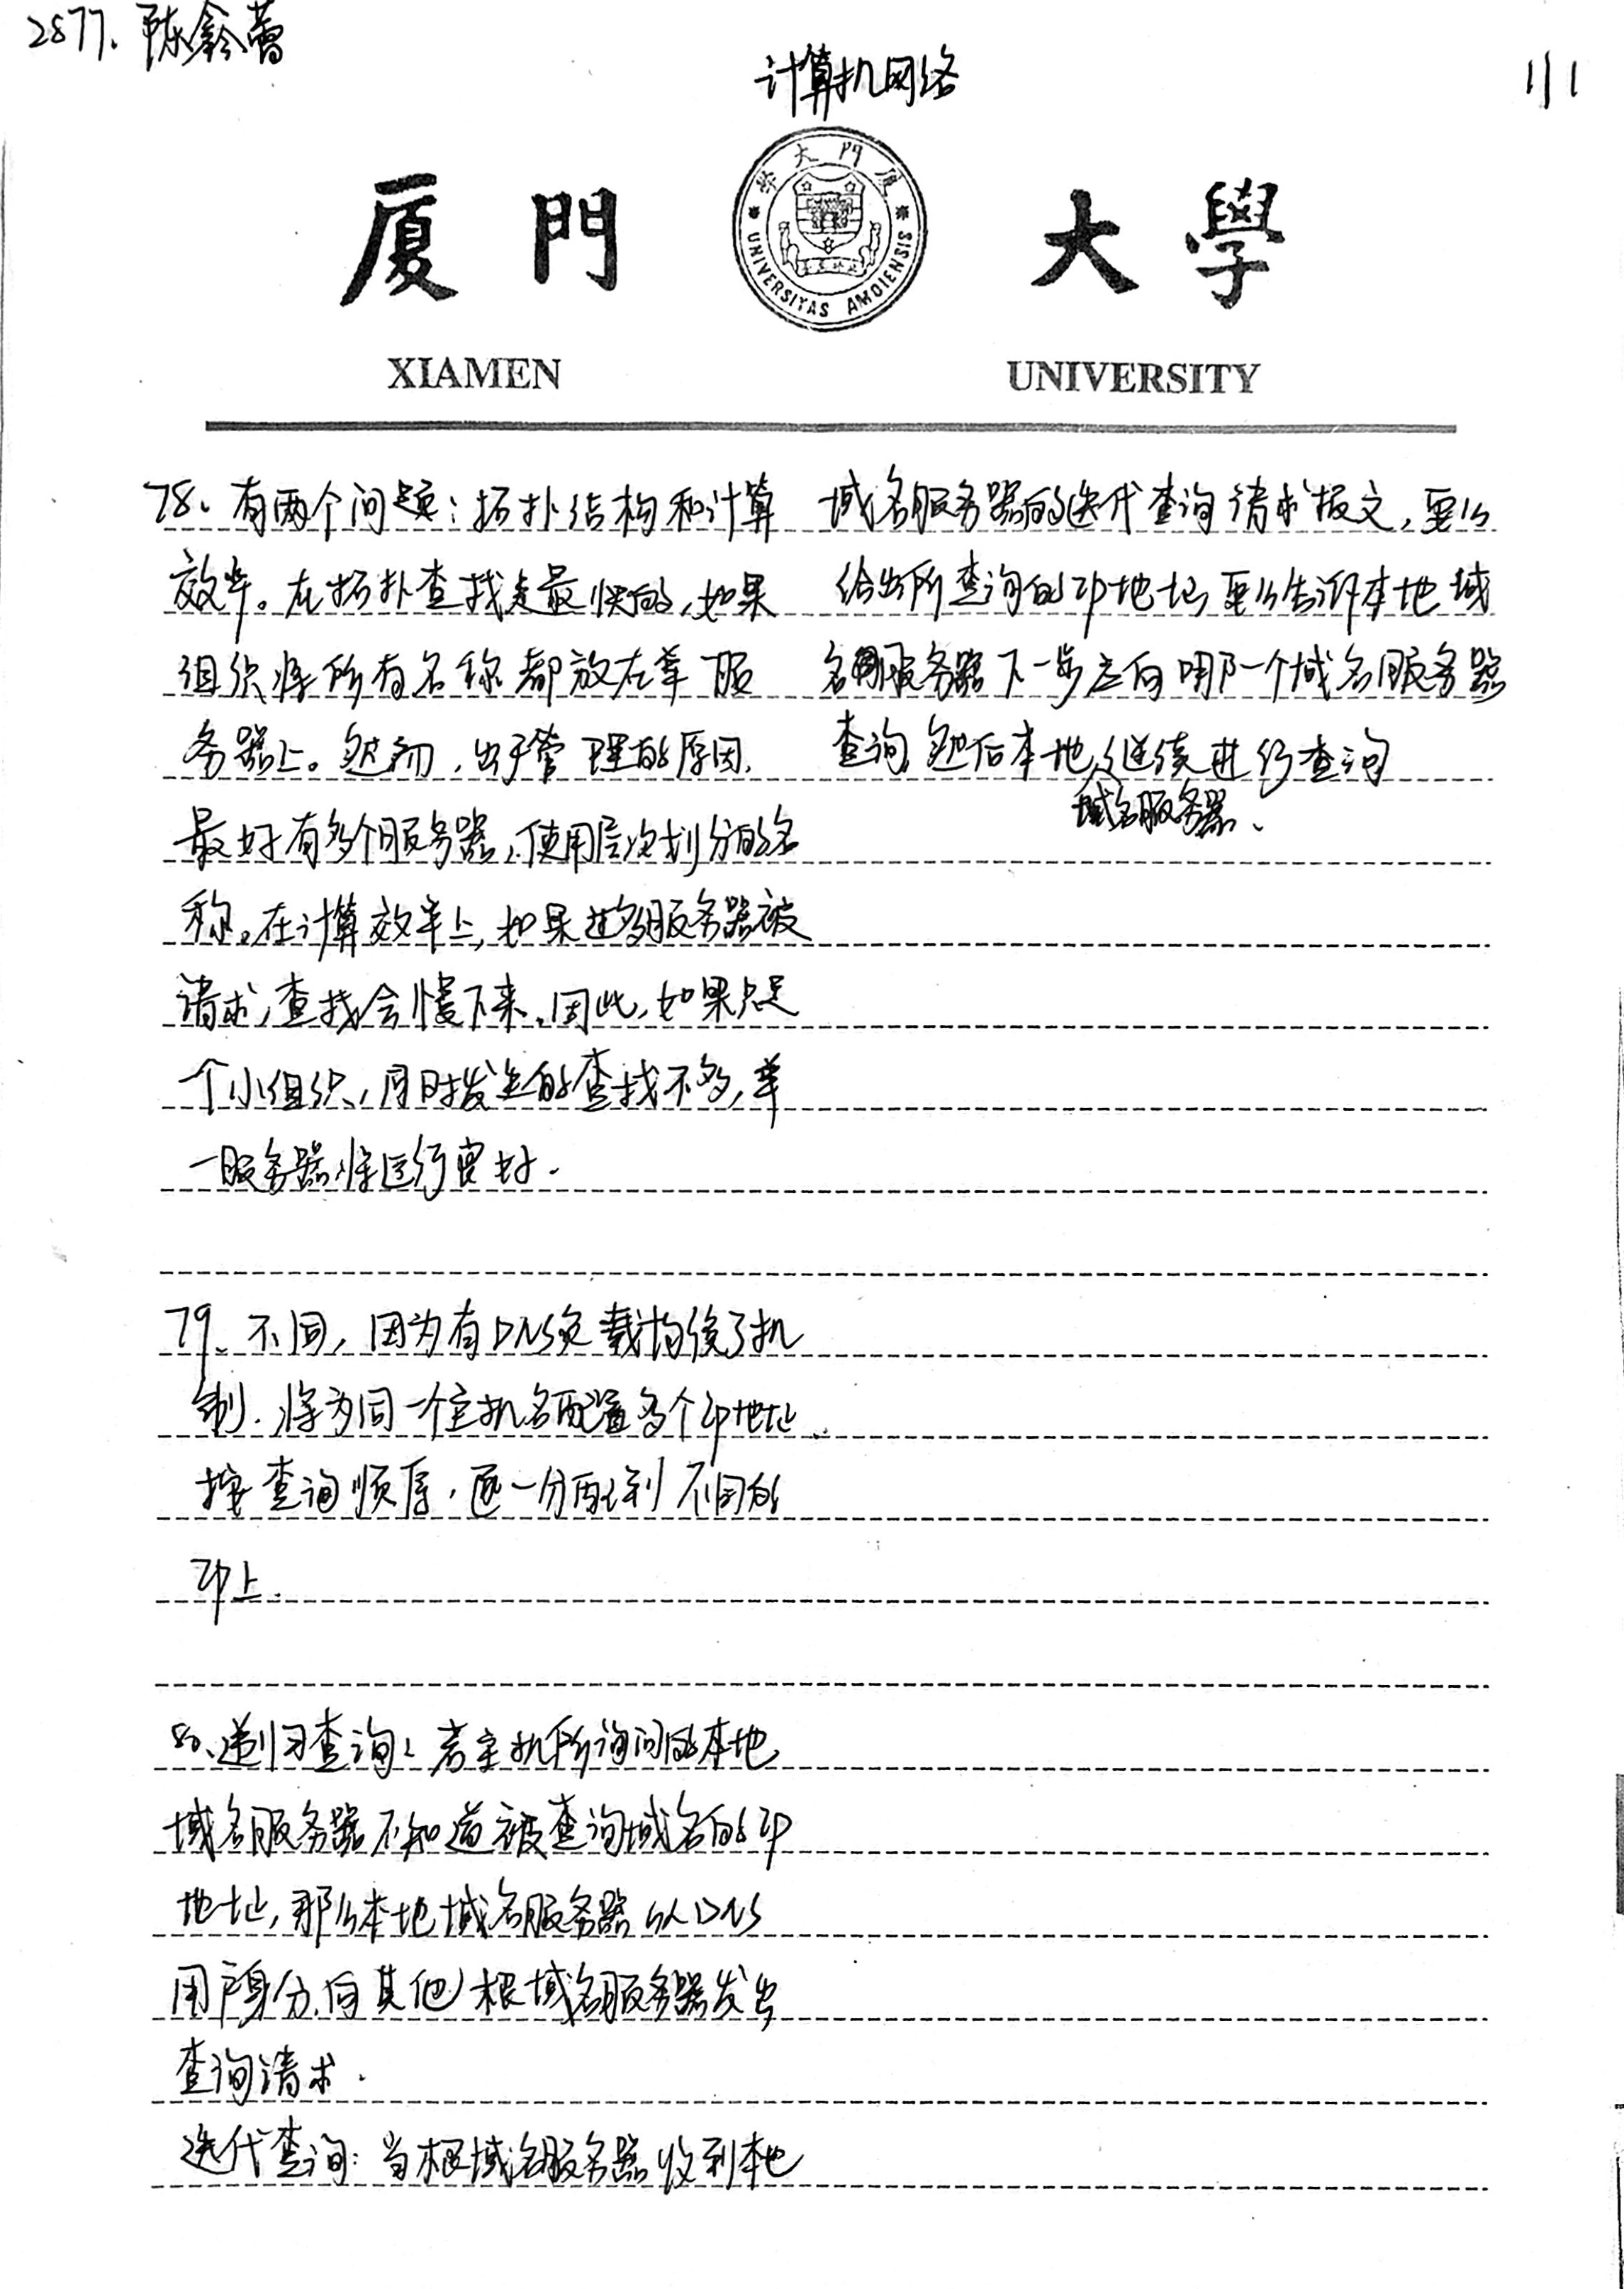 2877. 陈鑫蕾
计算机网络
1|1
厦門大學
大門厦
UNIVERSITAS AMOIENSIS
XIAMEN UNIVERSITY
78. 有两个问题:拓扑结构和计算
效率。在拓扑查找是最快的,如果
组织将所有名称都放在单服
务器上。然而,出于管理的原因,
最好有多个服务器,使用层次划分的名
称。在计算效率上,如果过多服务器被
请求,查找会慢下来。因此,如果只是
个小组织,同时发生的查找不多,单
一服务器将运行更好.
79. 不同,因为有DNS负载均衡了机
制. 将为同一个主机名配置多个IP地址.
按查询顺序,逐一分配到不同的
IP上.
80. 递归查询:若主机所询问的本地
域名服务器不知道被查询域名的IP
地址,那么本地域名服务器以DNS
用户身分,向其他根域名服务器发出
查询请求.
迭代查询:当根域名服务器收到本地
域名服务器的迭代查询请求报文,要么
给出所查询的IP地址,要么告诉本地域
名服务器下一步应向哪一个域名服务器
查询,然后本地域名服务器继续进行查询.